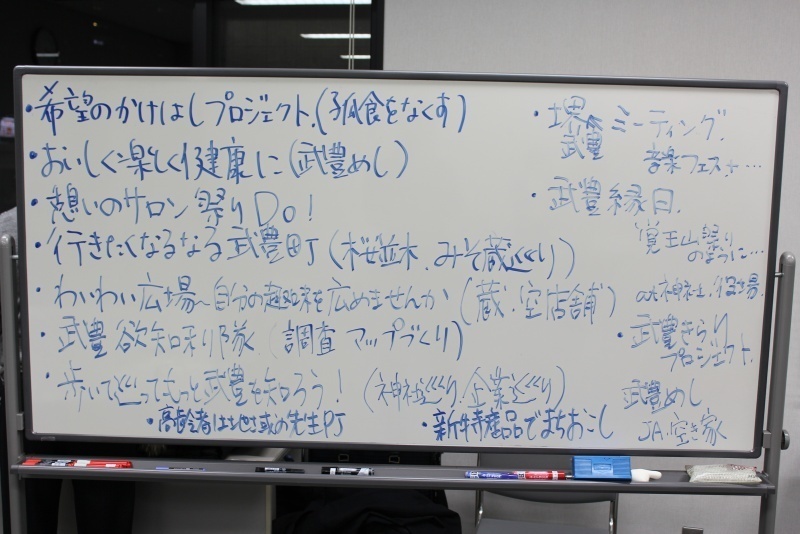 ・希望のかけはしプロジェクト.(孤食をなくす)
・おいしく楽しく健康に(武豊めし)
・憩いのサロン 祭りDo!
・行きたくなるなる武豊町(桜並木.みそ蔵巡り)
・わいわい広場~自分の趣味を広めませんか(蔵.空店舗)
・武豊 欲知利隊(調査 マップづくり)
・歩いて巡ってもっと武豊を知ろう!(神社巡り.企業巡り)
・高齢者は地域の先生PJ
・新特産品でまちおこし
・堺 ミーティング.
武豊
音楽フェス
・武豊縁日.
覚王山祭り
のように…
at 神社.役場.
・武豊きらり
プロジェクト.
武豊めし
JA.空き家